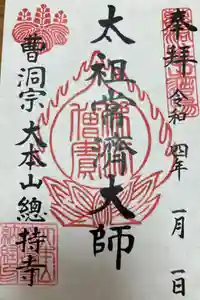 奉拝
令和四年
一月一日
太祖常濟大師
曹洞宗大本山總持寺